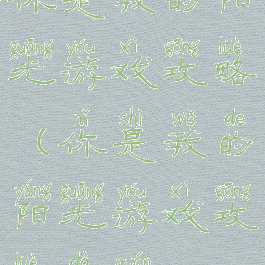 你是我的阳
guāng yóu xì gōng lüè
光游戏攻略
nǐ shì wǒ de
（你是我的
yáng guāng yóu xì gōng
阳光游戏攻
lüè